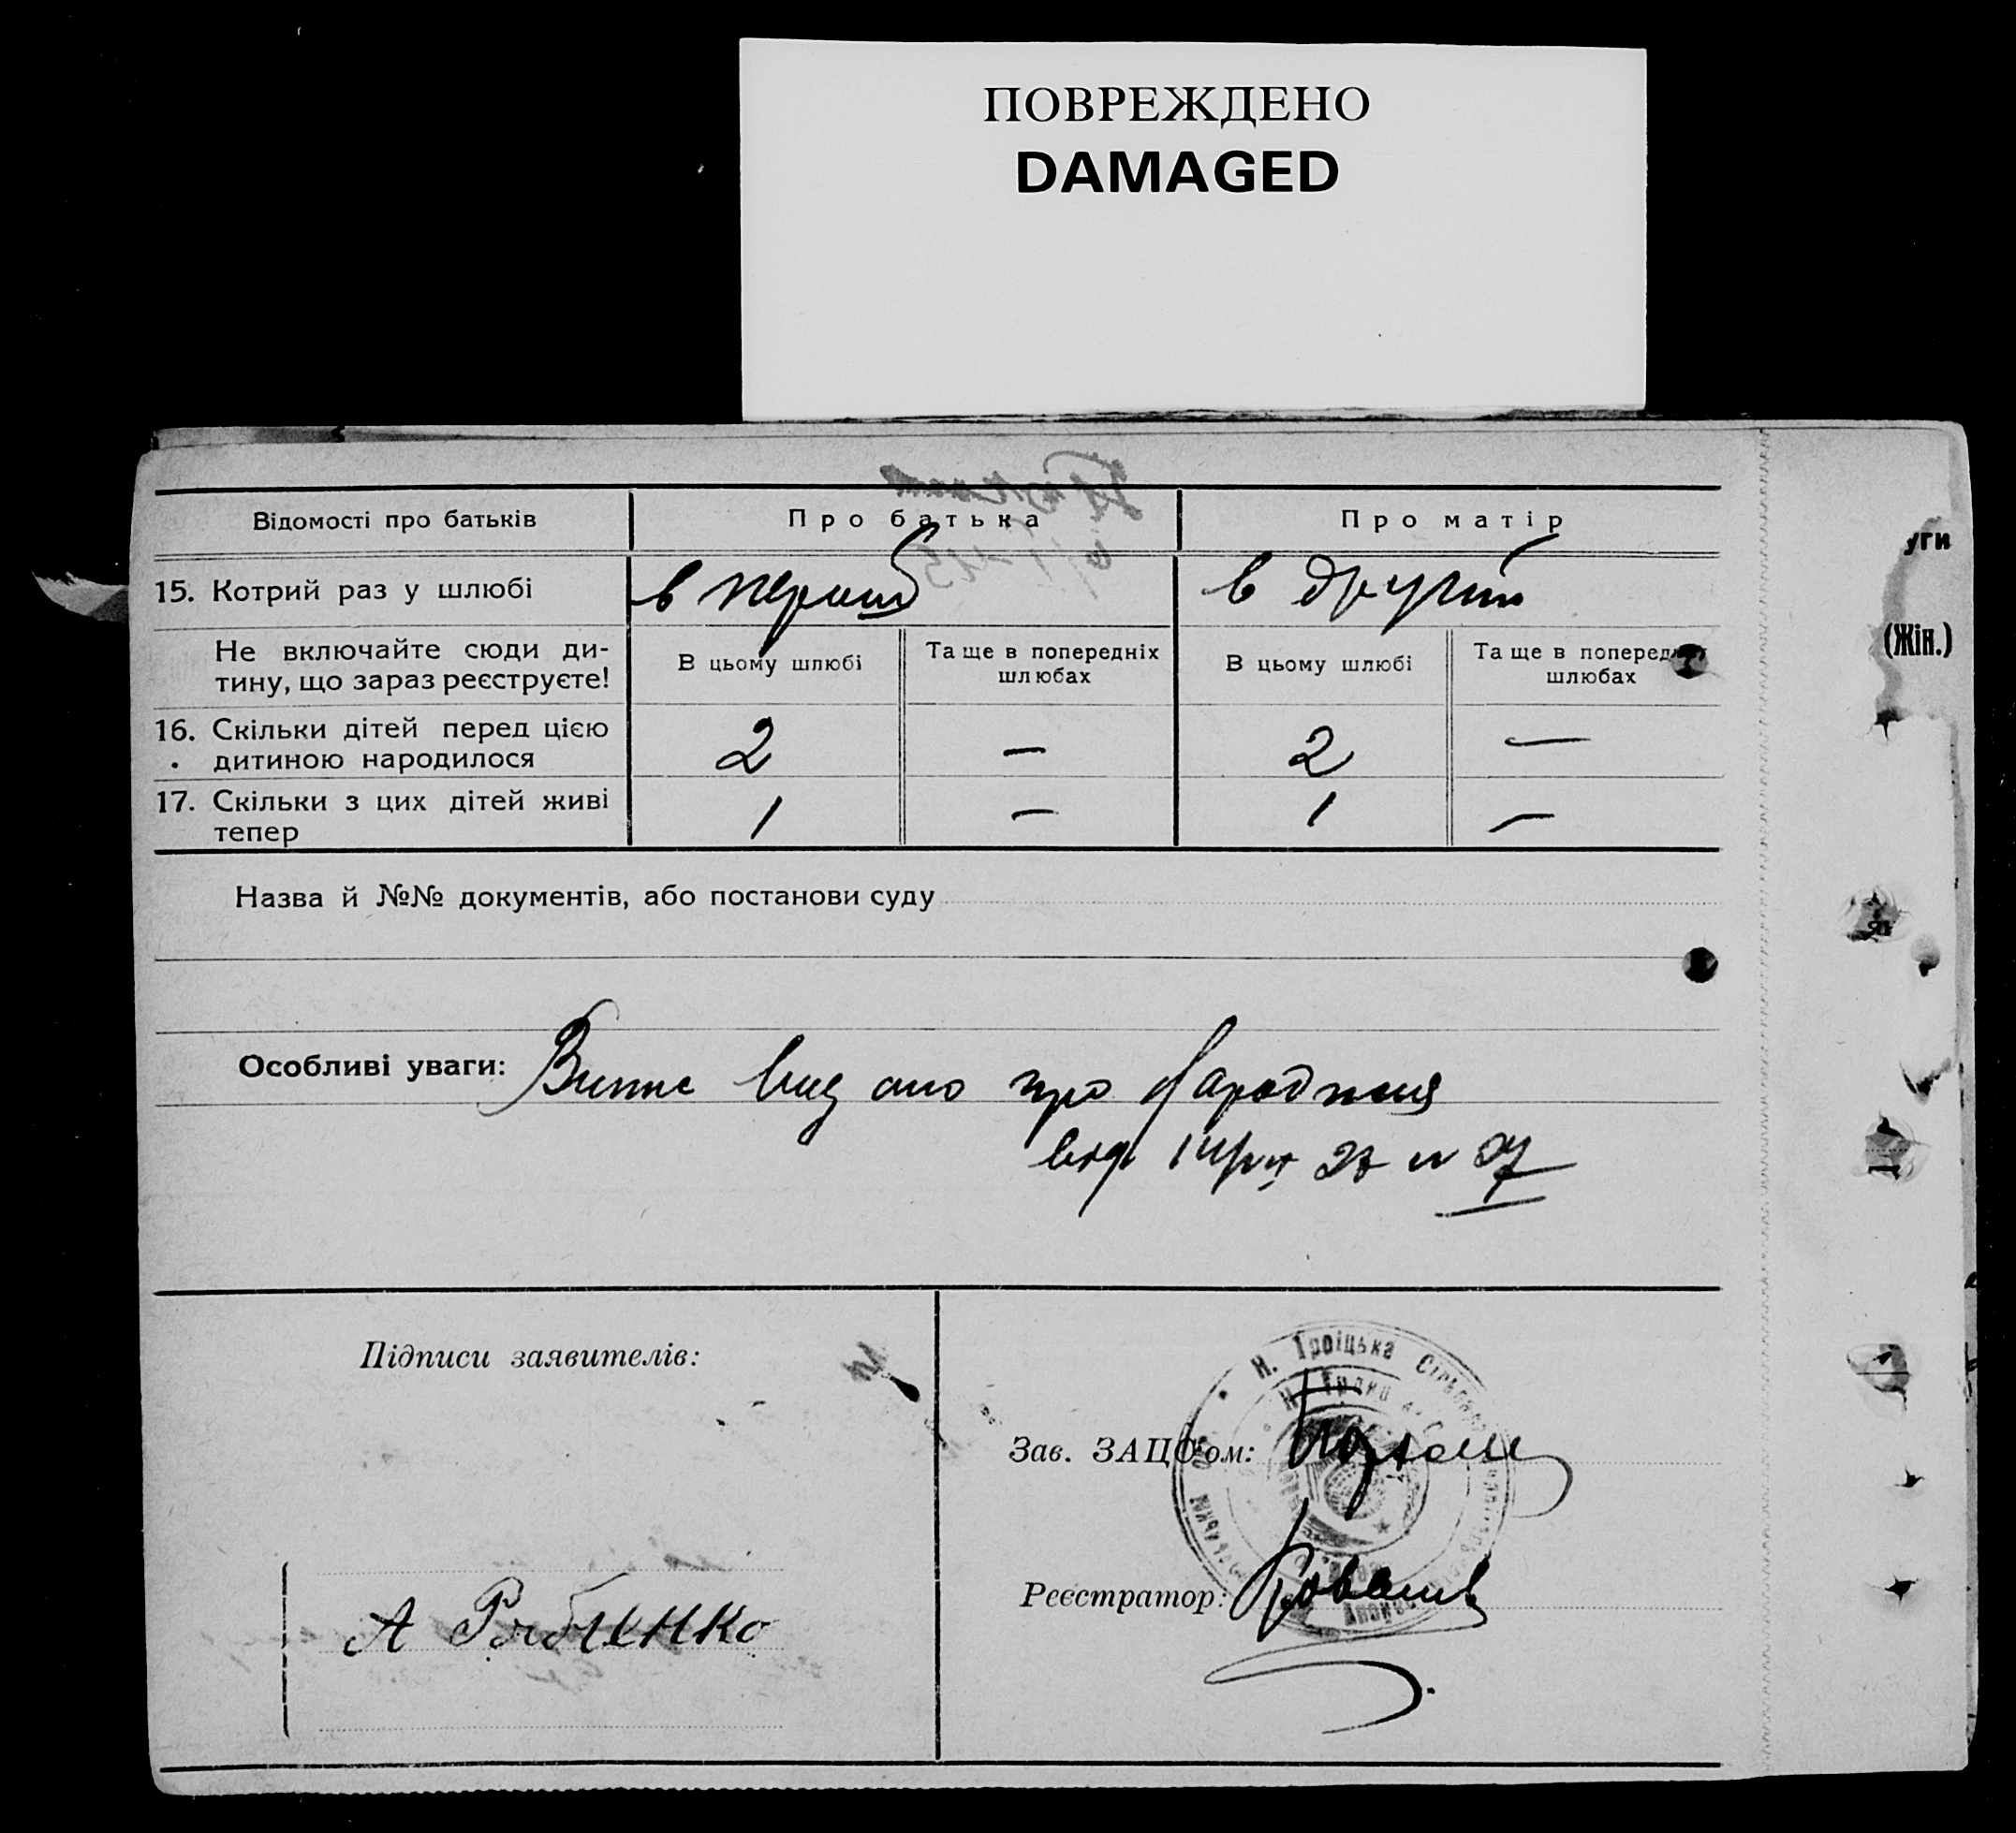 ПОВРЕЖДЕНО
DAMAGED
Відомості про батьків
Про батька
Про матір
15. Котрий раз у шлюбі
в перший
в другий
Не включайте сюди ди-
тину, що зараз реєструєте!
В цьому шлюбі
Та ще в попередніх
шлюбах
В цьому шлюбі
Та ще в
шлюбах
16. Скільки дітей перед цією
дитиною народилося
2
—
2
—
17. Скільки з цих дітей живі
тепер
1
—
1
—
Назва й №№ документів, або постанови суду
Особливі уваги:
Випис видано про народження
Підписи заявителів:
А Рябченко
Н. Троїцька
Зав. ЗАЦС'ом:
Реєстратор:
уги
(Жін.)